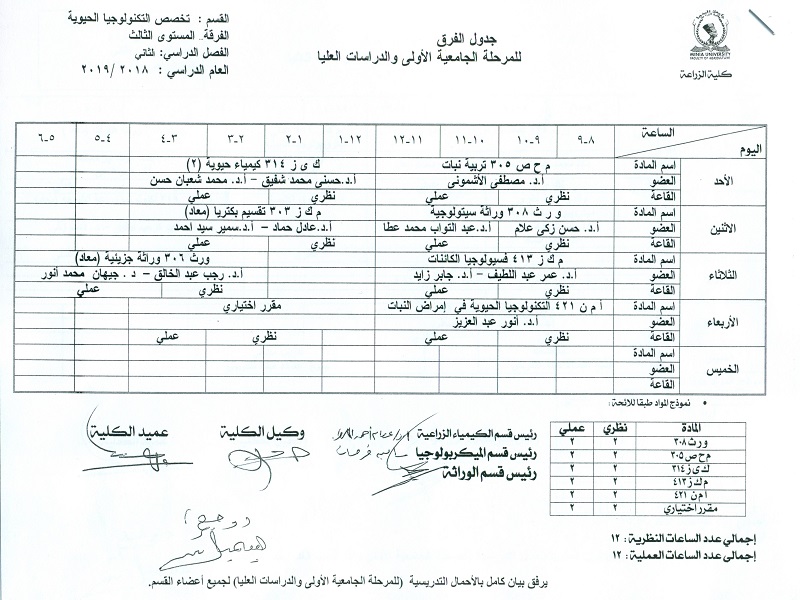 القسم : تخصص التكنولوجيا الحيوية
الفرقة.. المستوى الثالث
الفصل الدراسي: الثاني
العام الدراسي : ٢٠١٨ / ٢٠١٩
جدول الفرق
للمرحلة الجامعية الأولى والدراسات العليا
MINIA UNIVERSITY
FACULTY OF AGRICULTURE
كلية الزراعة
الساعة
اليوم
٨-٩ ٩-١٠ ١٠-١١ ١١-١٢ ١٢-١ ١-٢ ٢-٣ ٣-٤ ٤-٥ ٥-٦
الأحد
اسم المادة م ح ص ٣٠٥ تربية نبات ك ى ز ٣١٤ كيمياء حيوية (٢)
العضو أ.د. مصطفى الأشمونى أ.د.حسنى محمد شفيق - أ.د. محمد شعبان حسن
القاعة نظري عملي نظري عملي
الاثنين
اسم المادة و ر ث ٣٠٨ وراثة سيتولوجية م ك ز ٣٠٣ تقسيم بكتريا (معاد)
العضو أ.د. حسن زكى علام أ.د.عبد التواب محمد عطا أ.د.عادل حماد - أ.د.سمير سيد احمد
القاعة نظري عملي نظري عملي
الثلاثاء
اسم المادة م ك ز ٤١٣ فسيولوجيا الكائنات ورث ٣٠٦ وراثة جزيئية (معاد)
العضو أ.د. عمر عبد اللطيف - أ.د. جابر زايد أ.د. رجب عبد الخالق - د . جيهان محمد أنور
القاعة نظري عملي نظري عملي
الأربعاء
اسم المادة أ م ن ٤٢١ التكنولوجيا الحيوية في إمراض النبات مقرر اختياري
العضو أ.د. أنور عبد العزيز
القاعة نظري عملي نظري عملي
الخميس
اسم المادة
العضو
القاعة
• نموذج المواد طبقا للائحة:
المادة نظري عملي
ورث ٣٠٨ ٢ ٢
م ح ص ٣٠٥ ٢ ٢
ك ى ز ٣١٤ ٢ ٢
م ك ز ٤١٣ ٢ ٢
أ م ن ٤٢١ ٢ ٢
مقرر اختياري ٢ ٢
رئيس قسم الكيمياء الزراعية
رئيس قسم الميكربولوجيا
رئيس قسم الوراثة
وكيل الكلية
عميد الكلية
إجمالي عدد الساعات النظرية : ١٢
إجمالي عدد الساعات العملية : ١٢
يرفق بيان كامل بالأحمال التدريسية (للمرحلة الجامعية الأولى والدراسات العليا) لجميع أعضاء القسم.